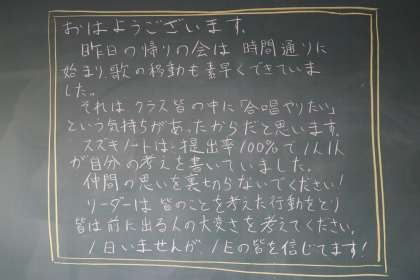 おはようございます。
昨日の帰りの会は 時間通りに
始まり、歌の移動も素早くできていま
した。
それは、クラス皆の中に「合唱やりたい」
という気持ちがあったからだと思います。
スズキノートは、提出率100%で1人1人
が自分の考えを書いていました。
仲間の思いを裏切らないでください!
リーダーは 皆のことを考えた行動をとり
皆は前に出る人の大変さを考えてください。
1日いませんが、1Eの皆を信じてます!